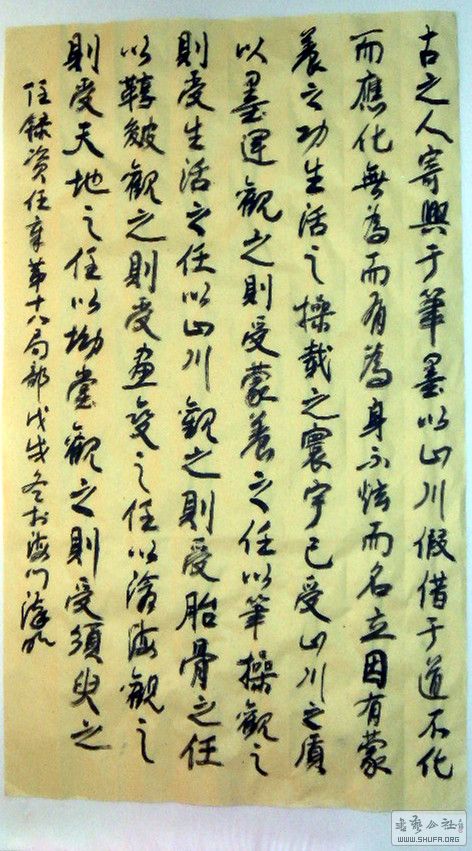 古之人寄興于筆墨以山川假借于道不化
而應化無為而有為身不炫而名立因有蒙
養之功生活之操載之寰宇已受山川之質
以墨運觀之則受蒙養之任以筆操觀之
則受生活之任以山川觀之則受胎骨之任
以鞟皴觀之則受畫變之任以滄海觀之
則受天地之任以坳堂觀之則受須臾之
任錄资任章第十八局部戊戌冬於海门
书艺公社
WWW.SHUFA.ORG